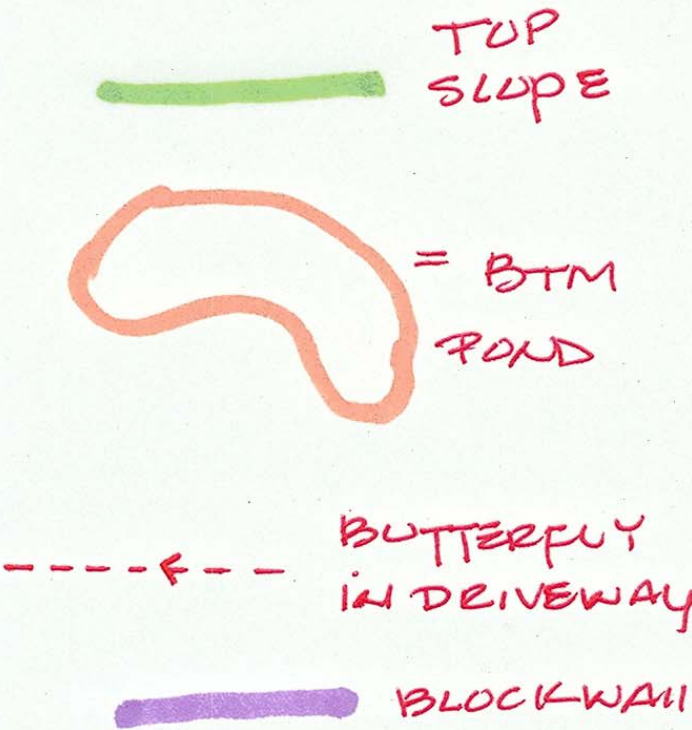 TOP
SLOPE
= BTM
POND
BUTTERFLY
IN DRIVEWAY
BLOCKWAll